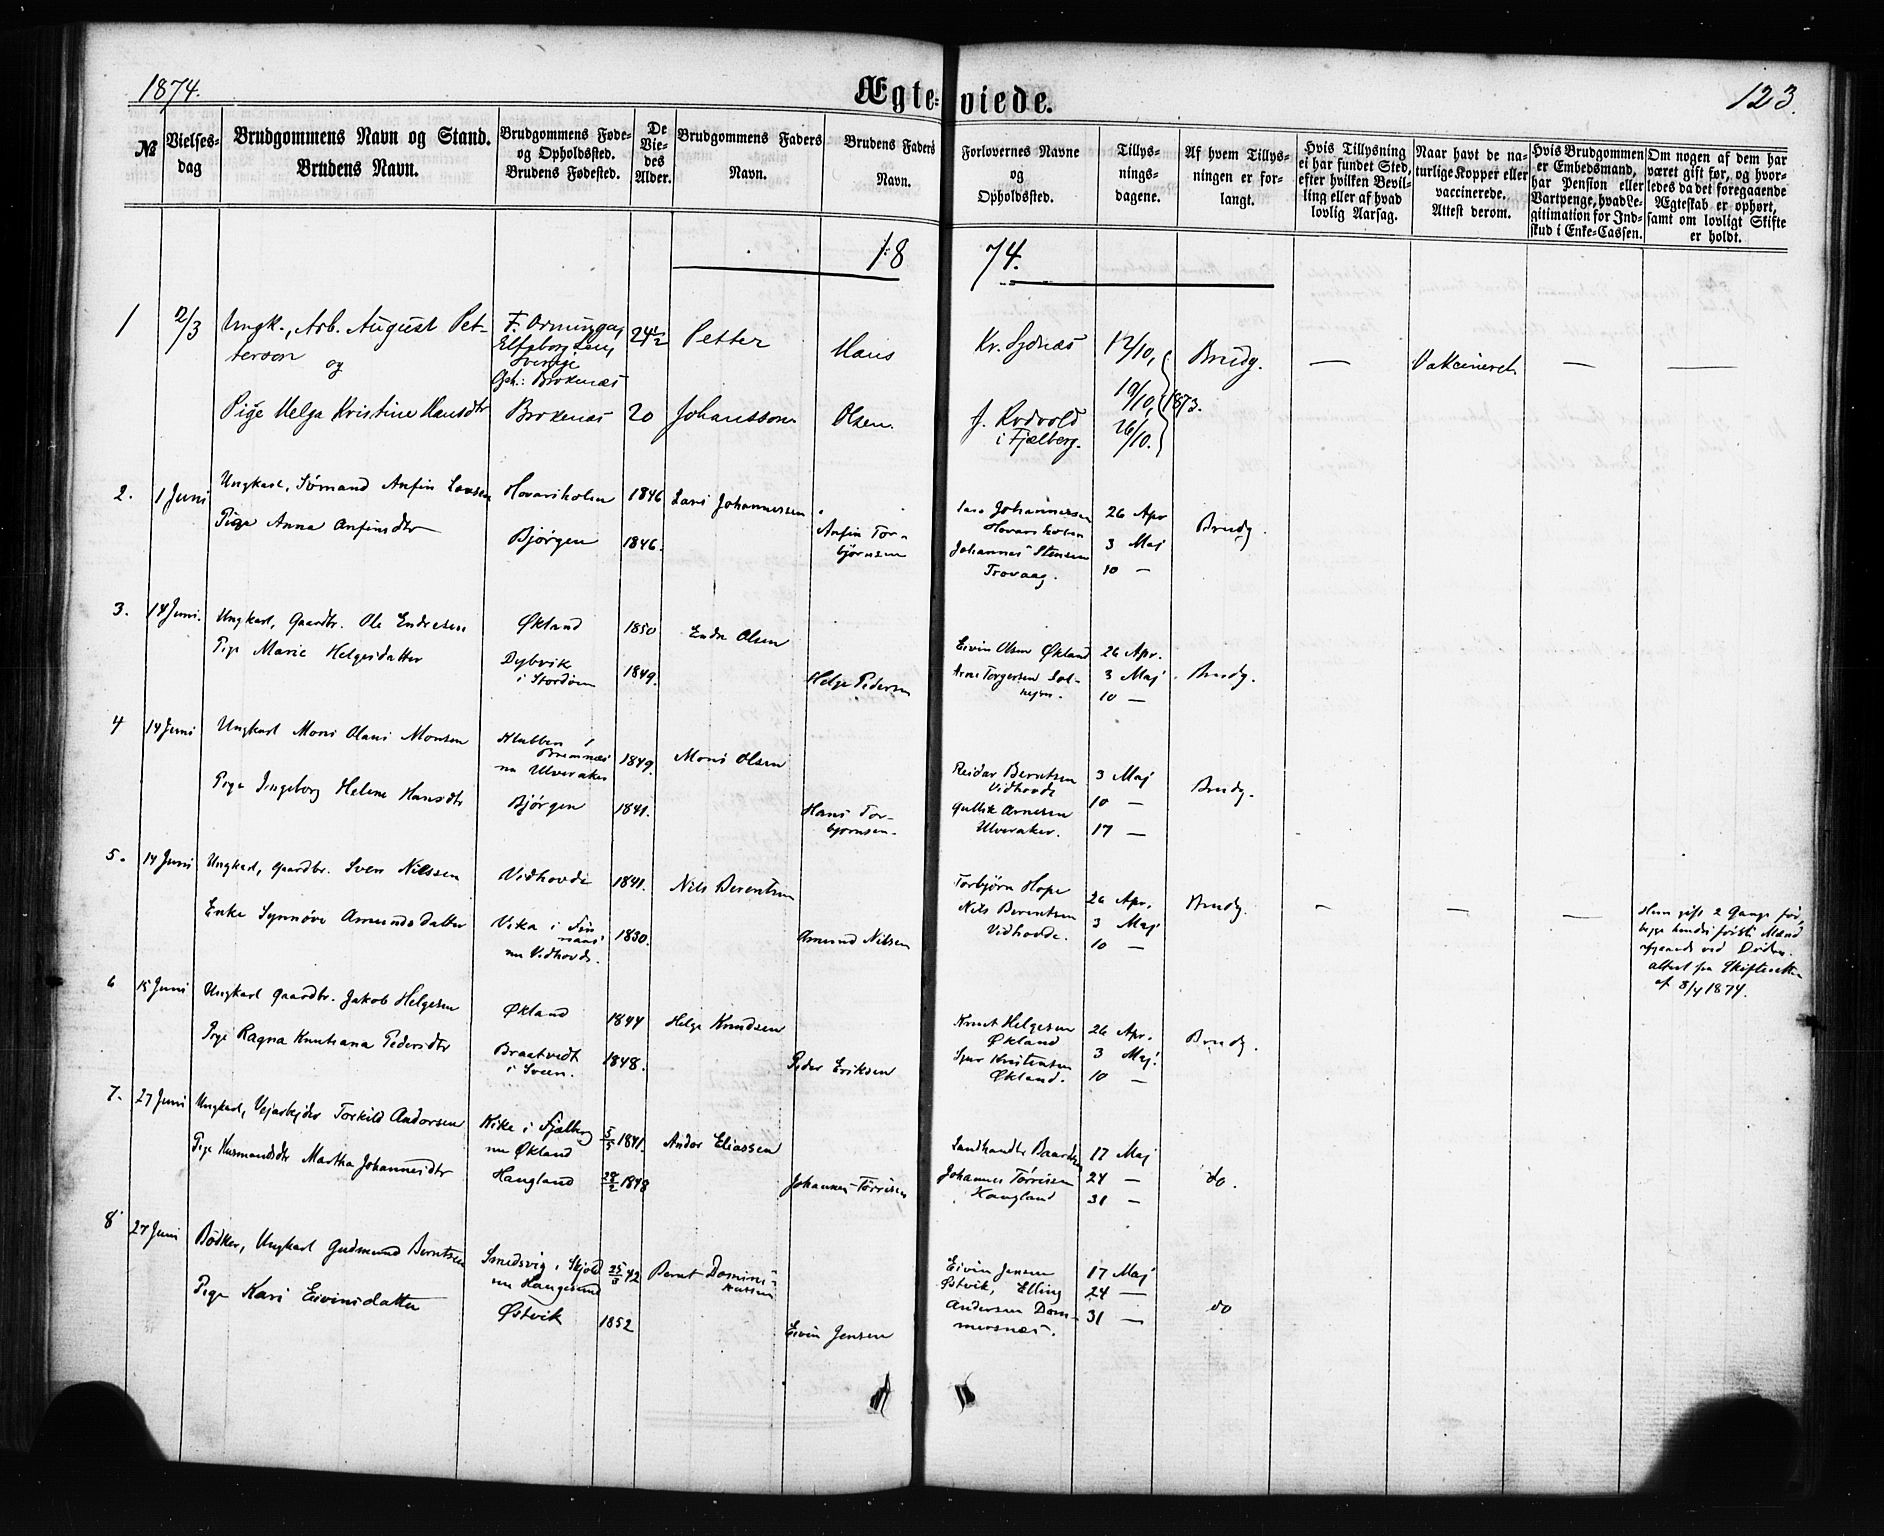 1874.
Ægte-viede.
123.
№
Vielses-dag
Brudgommens Navn og Stand.
Brudens Navn.
Brudgommens Føde-
og Opholdssted.
Brudens Fødested.
De
Vie-
des
Alder.
Brudgommens Faders
Navn.
Brudens Faders
Navn.
Forlovernes Navne
og
Opholdssted.
Tillys-
nings-
dagene.
Af hvem Tillys-
ningen er for-
langt.
Hvis Tillysning
ei har fundet Sted,
efter hvilken Bevil-
ling eller af hvad
lovlig Aarsag.
Naar havt de na-
turlige Kopper eller
vaccinerede.
Attest derom.
Hvis Brudgommen
er Embedsmand,
har Pension eller
Vartpenge, hvad Le-
gitimation for Ind-
skud i Enke-Cassen.
Om nogen af dem har
været gift før, og hvor-
ledes da det foregaaende
Ægteskab er ophørt,
samt om lovligt Skifte
er holdt.
18 74.
1 12/3 Ungk., Arb. August Pet-
terson
og
Elfsborg Len,
Sverige
Oph.: Brokenæs
24 1/2 Petter
Johansson
Pige Helga Kristine Hansdtr Brokenæs 20
Hans
Olsen.
Kv. Sydnæs
J. Rodvold
i Fjælberg.
12/10,
19/10, 1873.
26/10.
Brudg. — Vakcineret — —
2. 1 Juni Ungkarl, Sömand Anfin Larsen Hovarsholm 1846 Lars Johannessen
Pige Anna Anfinsdtr Bjørgen 1846.
Anfin Tor-
bjørnsen
Lars Johannessen
Hovarsholm
Johannes Stensen
Trovaag.
26 Apr
3 Maj
10 —
Brudg.
3. 14 Juni. Ungkarl, Gaardbr. Ole Endresen Økland 1850 Endre Olsen
Pige Marie Helgesdatter Dybvik
i Stordøen 1849.
Helge Pedersen
Eivin Olsen Økland
Arne Torgersen Sol-
hejm.
26 Apr.
3 Maj
10 —
Brudg.
4 14 Juni Ungkarl Mons Olaus Monsen Klubben i
Bremnæs
nu Ulveraker 1849. Mons Olsen
Pige Ingeborg Helene Hansdtr Bjørgen 1841.
Hans Tor-
bjørnsen.
Reidar Berntsen
Vidhovde
Gullik Arnesen
Ulveraker.
3 Maj
10 —
17 —
Brudg.
5. 14 Juni Ungkarl, Gaardbr. Sven Nilssen Vidhovde 1841. Nils Berentsen
Enke Synnöve Amundsdatter Vika i Fin
naas
nu Vidhovde. 1830.
Amund Nilsen
Torbjørn Hope
Nils Berentsen
Vidhovde.
26 Apr.
3 Maj
10 —
Brudg. — — —
Hun gift 2 Gange før,
begge hendes første Mænd
afgaaede ved Døden.
attest fra Skifteretten
af 8/4 1874.
6 15 Juni Ungkarl Gaardbr. Jakob Helgesen Økland 1844 Helge Knudsen
Pige Ragna Knutiana Pedersdtr Braatvedt
i Sveen. 1848.
Peder Eriksen
Knut Helgesen
Økland
Sjur Kristensen
Økland.
26 Apr.
3 Maj.
10 —
Brudg.
7. 27 Juni Ungkarl, Vejarbejder Torkild Andorsen Vike i Fjælberg
nu Økland 5/5 1841. Andor Eliassen
Pige Husmandsdtr Martha Johannesdtr Haugland 28/2 1848
Johannes Tørrisen
Landhandler Baardsen
Johannes Tørrisen
Haugland
17 Maj
24 —
31 —
do.
8 27 Juni Bødker, Ungkarl Gudmund Berntsen Smedsvig i Skjold
nu Haugesund 42 Bernt Domini-
kussen
Pige Kari Eivinsdatter Østvik 1852
Eivin Jensen
Eivin Jensen
Østvik, Elling
Andersen Dom-
mersnæs.
17 Maj
24 —
31 —
do